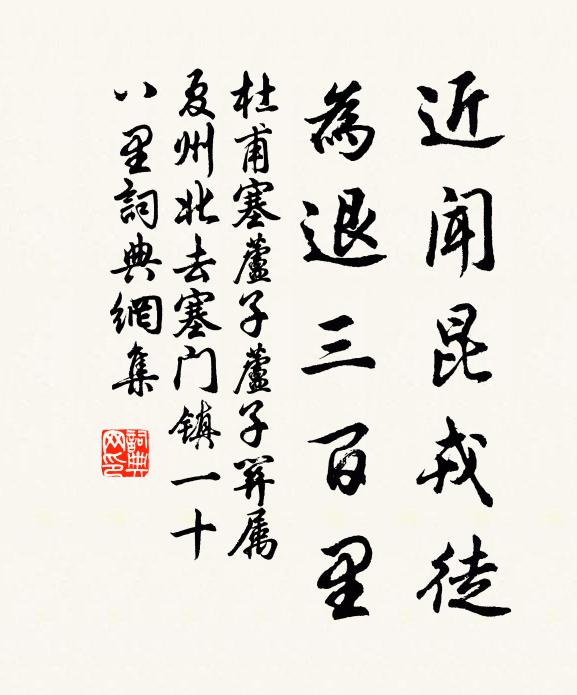 近聞昆戎徒
為退三百里
杜甫塞蘆子蘆子關屬
夏州北去塞门镇一十
八里詞典網集
詞典网印